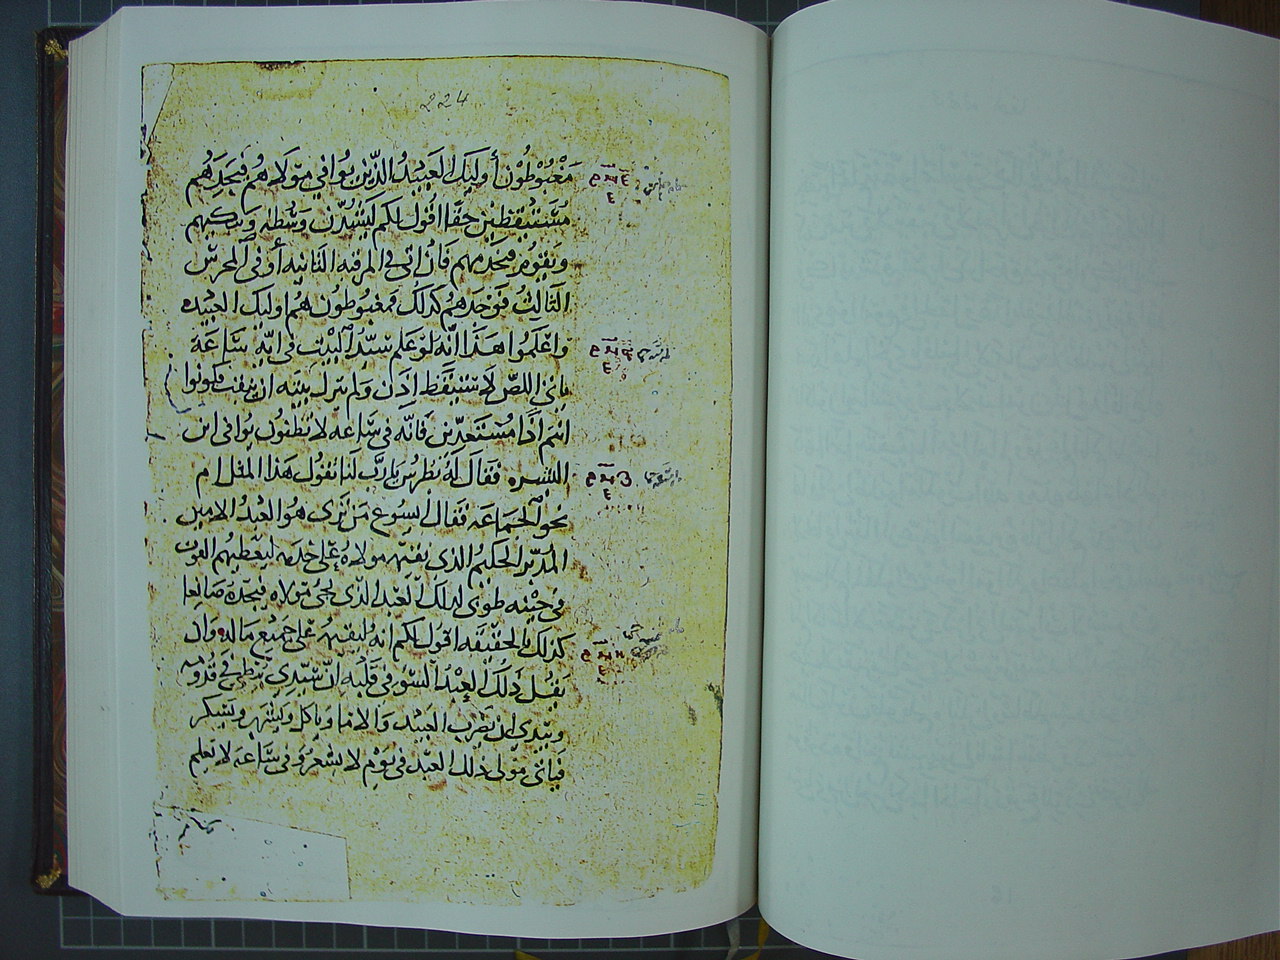 224
مَغْبُوْطُوْن أوليَك العَبيْدُ الذّين يُوافي مَوْلاهُم فيَجدهُم
مُسْتيْقظِين حقًا اقول لكم ليَشُدّن وسْطه ويتكيهم
ويَقوم فيَخدمهم فان اتى في المرقبه الثانيه أو في المحرس
الثالث فوَجَدهُم كذلكَ فمغبوطون هُم اوليَك العَبيْده
واعْلموا هَذا انّه لوْ عَلم سيّد البَيْت في ايّه سَاعَة
ياتي اللصّ لاستيقظ اذن ولم يترك بيته ان ينقب فكونوا
انتم اذًا مُسْتعدّين فانّه في سَّاعه لا تظنون يُوافي ابن
البشره فقال لهُ بطرس يارَبّ لنا تقول هَذا المثل ام
نحو الجمَاعَه فقال ايسُوع مَن تَرَى هوَ العَبْدُ الامين
المُدبّر الحَكيمُ الذي يقيمه مولاهُ على خدمه ليعْطيهُم القوت
في حيْنه طوبى لذلك العَبد الذي يجئ مَوْلاه فيَجدهُ صانعا
كذلك بالحقيقه اقول لكم انه ليقيمهُ على جميع مَا له وان
يقل ذلكَ العَبْدُ السّو في قلبه ان سَيّدي يبطي في قدومه
ويَبتدي ان يضرب العَبيْد والاما وياكل ويشرب ويسكر
فياتي موْلى ذلك العَبْد في يَوْم لا يشعرُ وفي سَّاعه لا يعلم